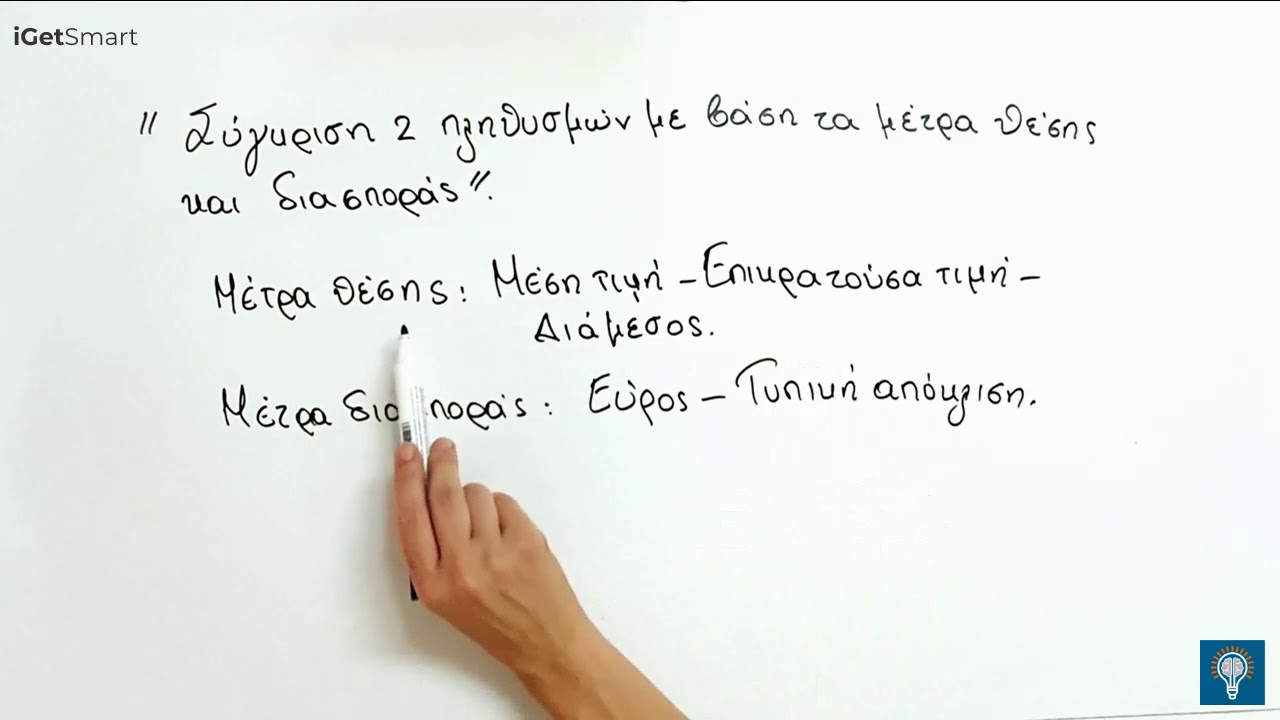 iGetSmart
" Σύγκριση 2 πληθυσμών με βάση τα μέτρα θέσης
και διασποράς".
Μέτρα θέσης: Μέση τιμή – Επικρατούσα τιμή –
Διάμεσος.
Μέτρα διασποράς: Εύρος – Τυπική απόκλιση.